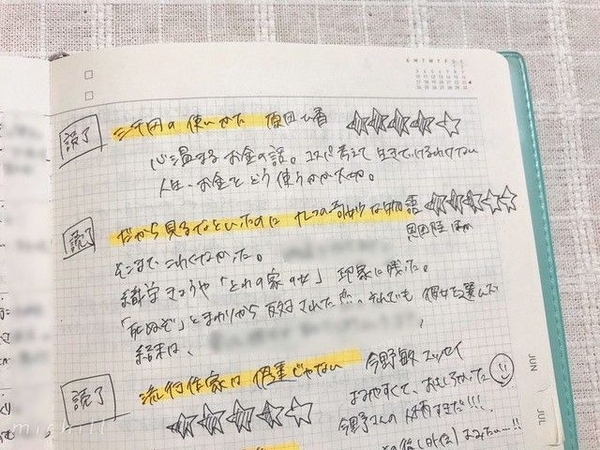 S M T W T F S
読了
三千円の使いかた 原田ひ香
心温まるお金の話。コスパ考えて生きていけるわけない
人生、お金をどう使うかが大切。
読了
だから見るなといったのに 九つの奇妙な物語
恩田陸 ほか
そこまでこわくなかった。
織守きょうや「とわの家の女」印象に残った。
「死ぬぞ」とまわりから反対された恋。それでも彼女を選んだ
結末は、
読了
流行作家は伊達じゃない
今野敏 エッセイ
よみやすくて、おもしろかった
今野さんの人柄すきだ!!!
JUN
JUL